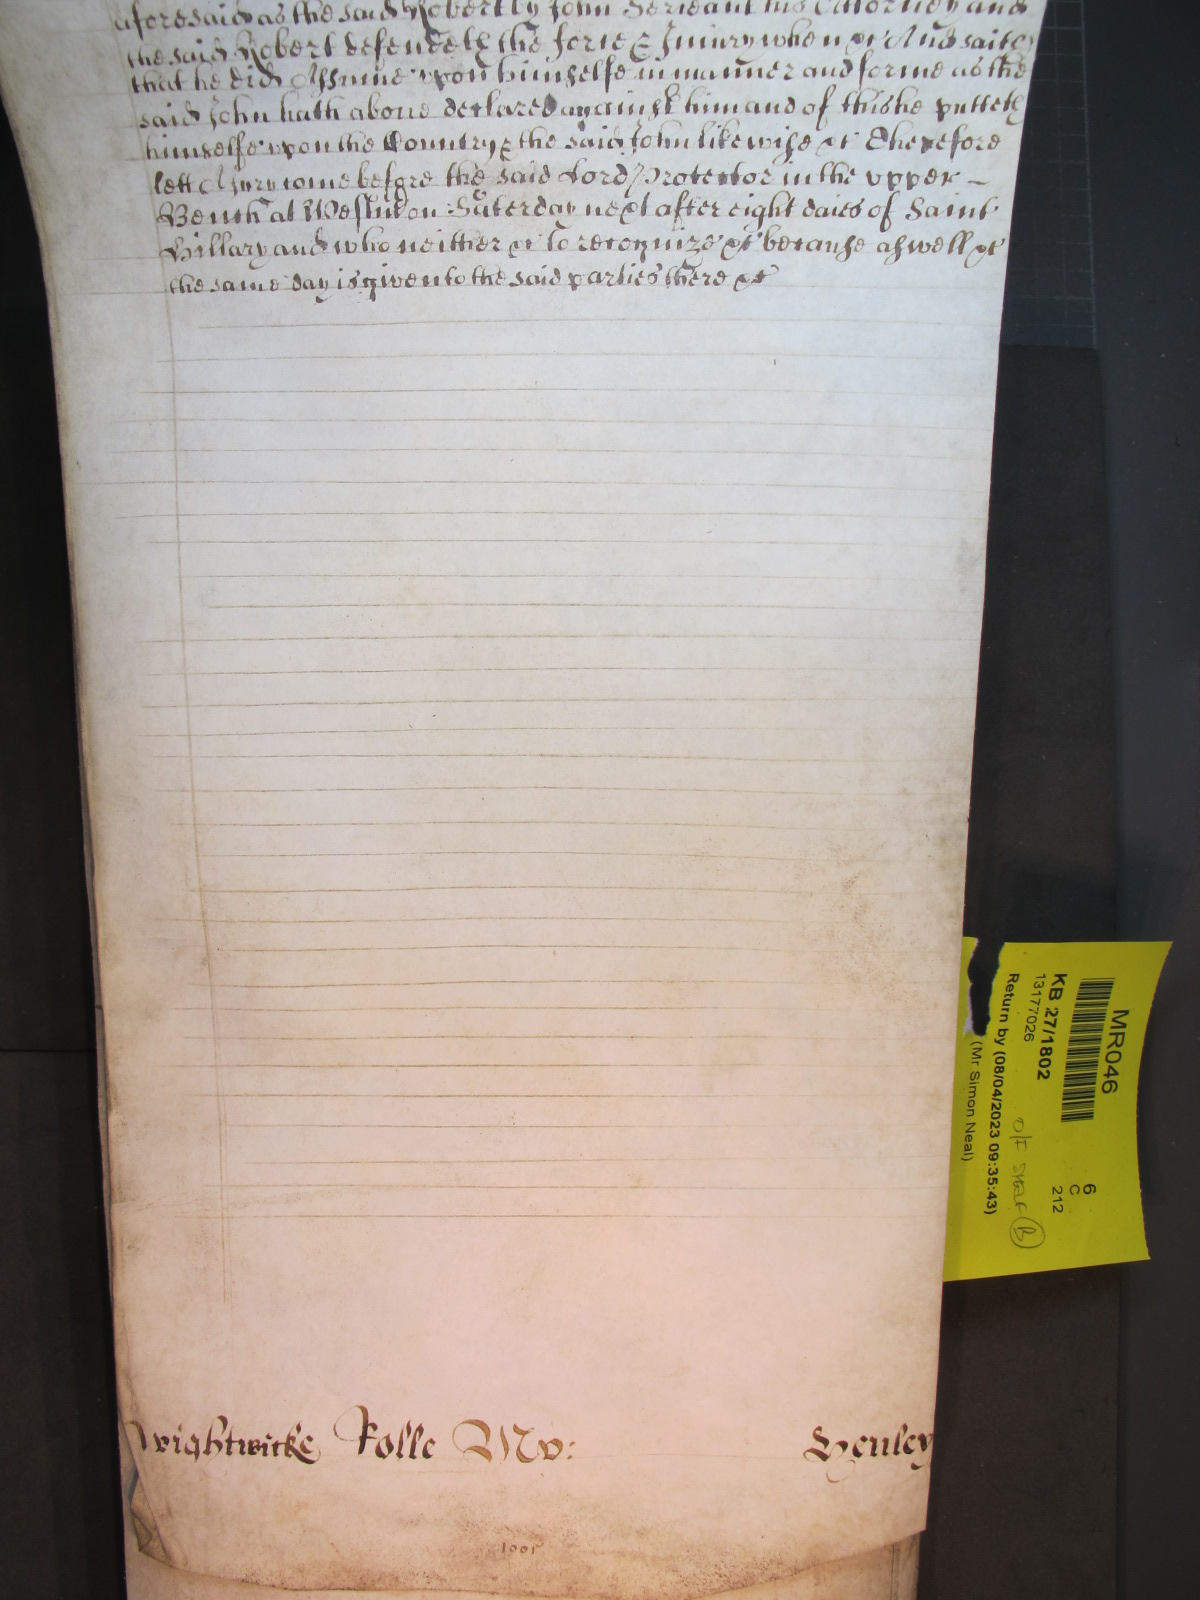 aforesaid as the said Robert by John Serieant his Attorney and
the said Robert defendeth the force & Iniury when &c And saith
that he did Assume vpon himselfe in manner and forme as the
said John hath aboue declared against him and of this he putteth
himselfe vpon the Country & the said John likewise &c Therefore
lett a Jury come before the said Lord Protector in the vpper –
Bench at Westm on Saterday next after eight daies of Saint
Hillary and who neither &c to recognize &c because aswell &c
the same day is giuen to the said parties there &c
Wightwicke Rolle Mv:
Henley
1001
MR046
KB 27/1802
13177026
Return by (08/04/2023 09:35:43)
(Mr Simon Neal)
6
C
212
O/F SHELF (B)